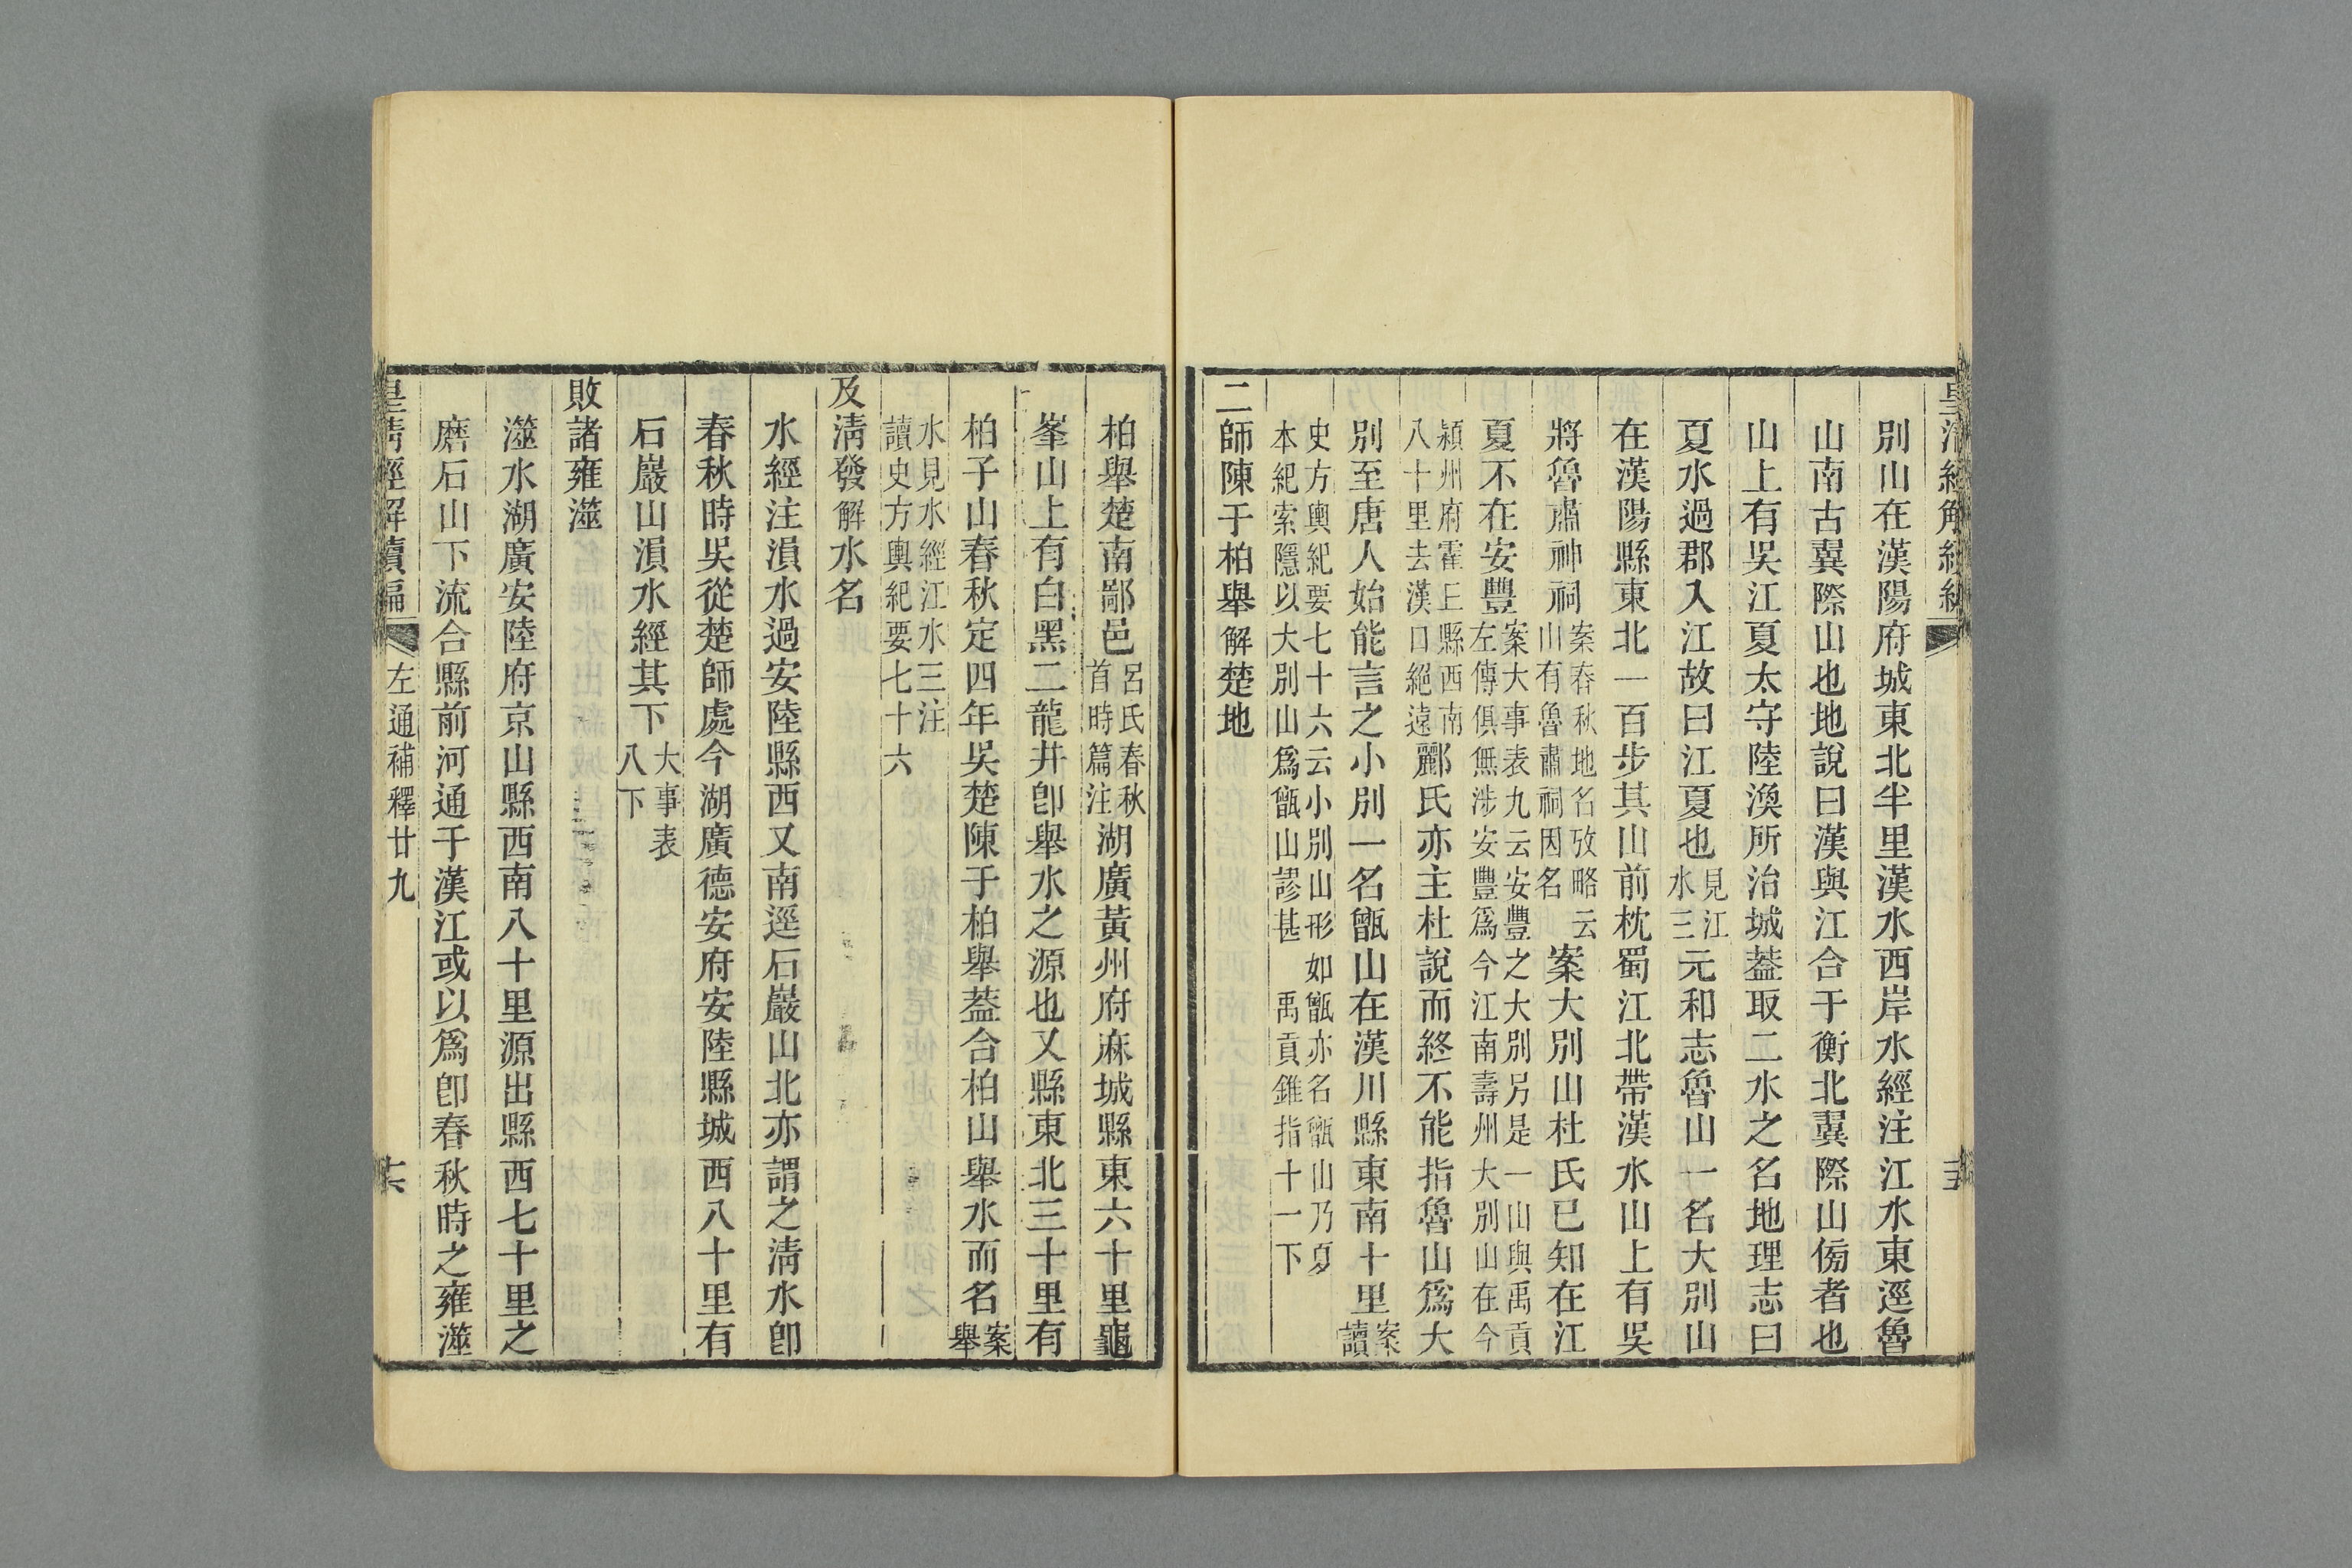 別山在漢陽府城東北半里漢水西岸水經注江水東逕魯
山南古翼際山也地說曰漢與江合于衡北翼際山傍者也
山上有吳江夏太守陸渙所治城葢取二水之名地理志曰
夏水過郡入江故曰江夏也見江水三元和志魯山一名大別山
在漢陽縣東北一百步其山前枕蜀江北帶漢水山上有吳
將魯肅神祠案春秋地名攷略云山有魯肅祠因名案大別山杜氏已知在江
夏不在安豐案大事表九云安豐之大別另是一山與禹貢左傳俱無涉安豐爲今江南壽州大別山在今
潁州府霍丘縣西南八十里去漢口絕遠酈氏亦主杜說而終不能指魯山爲大
別至唐人始能言之小別一名甑山在漢川縣東南十里案讀
史方輿紀要七十六云小別山形如甑亦名甑山乃夏本紀索隱以大別山爲甑山謬甚禹貢錐指十一下
二師陳于柏舉解楚地
柏舉楚南鄙邑呂氏春秋首時篇注湖廣黃州府麻城縣東六十里龜
峯山上有白黑二龍井卽舉水之源也又縣東北三十里有
柏子山春秋定四年吳楚陳于柏舉葢合柏山舉水而名案舉
水見水經江水三注讀史方輿紀要七十六
及淸發解水名
水經注溳水過安陸縣西又南逕石巖山北亦謂之淸水卽
春秋時吳從楚師處今湖廣德安府安陸縣城西八十里有
石巖山溳水經其下大事表八下
敗諸雍澨
澨水湖廣安陸府京山縣西南八十里源出縣西七十里之
磨石山下流合縣前河通于漢江或以爲卽春秋時之雍澨
皇淸經解續編 左通補釋廿九 十六